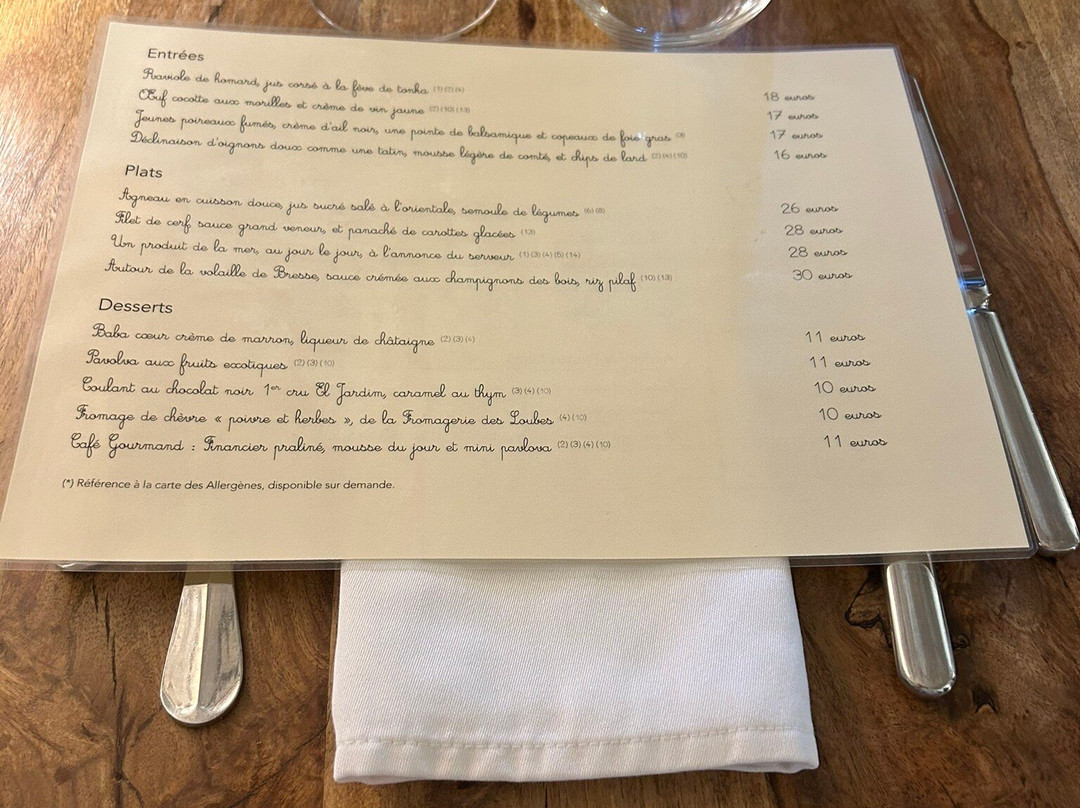 Entrées
Raviole de homard, jus corsé à la fève de tonka 18 euros
Œuf cocotte aux morilles et crème de vin jaune (2) (10) (13) 17 euros
Jeunes poireaux fumés, crème d'ail noir, une pointe de balsamique et copeaux de foie gras 17 euros
Déclinaison d'oignons doux comme une tatin, mousse légère de comté, et chips de lard (2) (4) (10) 16 euros
Plats
Agneau en cuisson douce, jus sucré salé à l'orientale, semoule de légumes (6) (8) 26 euros
Filet de cerf sauce grand veneur, et panaché de carottes glacées (13) 28 euros
Un produit de la mer, au jour le jour, à l'annonce du serveur (1) (3) (4) (5) (14) 28 euros
Autour de la volaille de Bresse, sauce crémée aux champignons des bois, riz pilaf (10) (13) 30 euros
Desserts
Baba cœur crème de marron, liqueur de châtaigne (2) (3) (4) 11 euros
Pavolva aux fruits exotiques (2) (3) (10) 11 euros
Coulant au chocolat noir 1er cru El Jardim, caramel au thym (3) (4) (10) 10 euros
Fromage de chèvre « poivre et herbes », de la Fromagerie des Loubes (4) (10) 10 euros
Café Gourmand : Financier praliné, mousse du jour et mini pavlova (2) (3) (4) (10) 11 euros
(*) Référence à la carte des Allergènes, disponible sur demande.